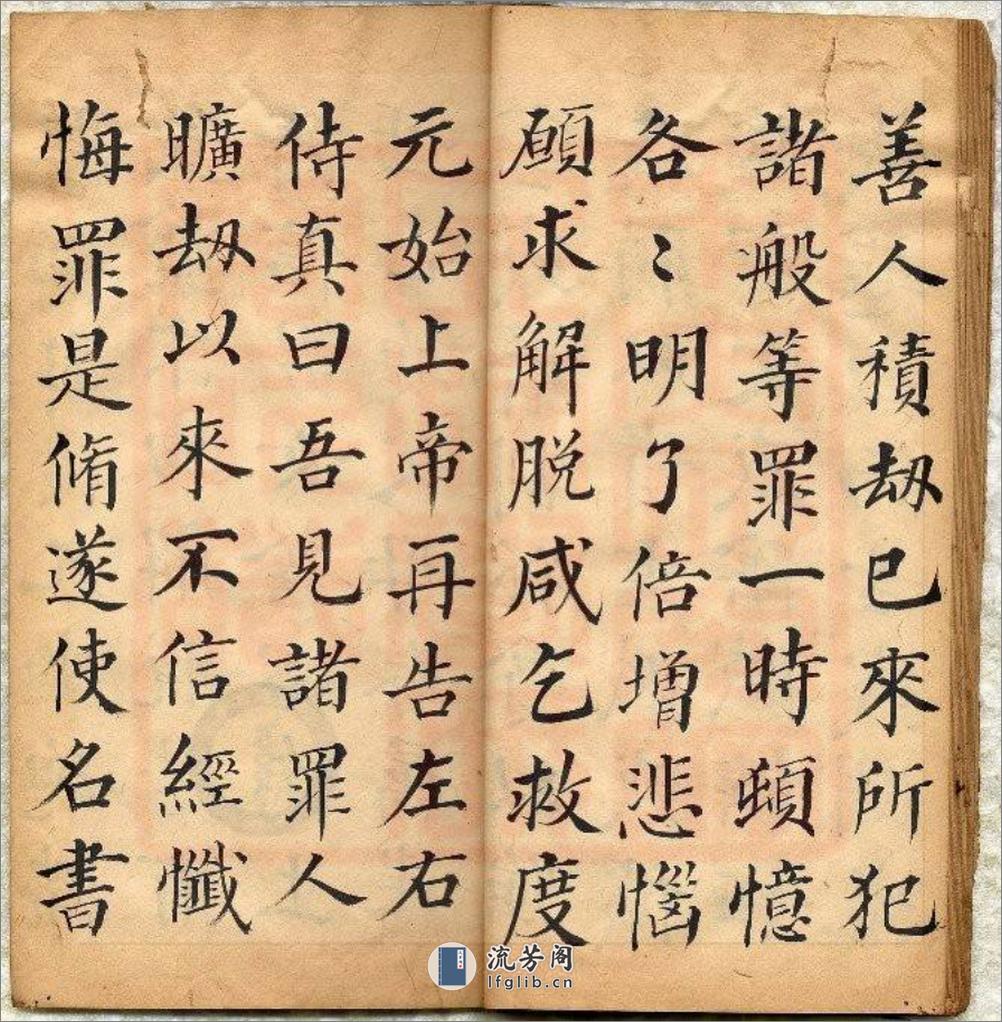 善人積劫已來所犯
諸般等罪一時頓憶
各〻明了倍增悲惱
願求解脫咸乞救度
元始上帝再告左右
侍真曰吾見諸罪人
曠劫以來不信經懺
悔罪是脩遂使名書
流芳阁
lfglib.cn